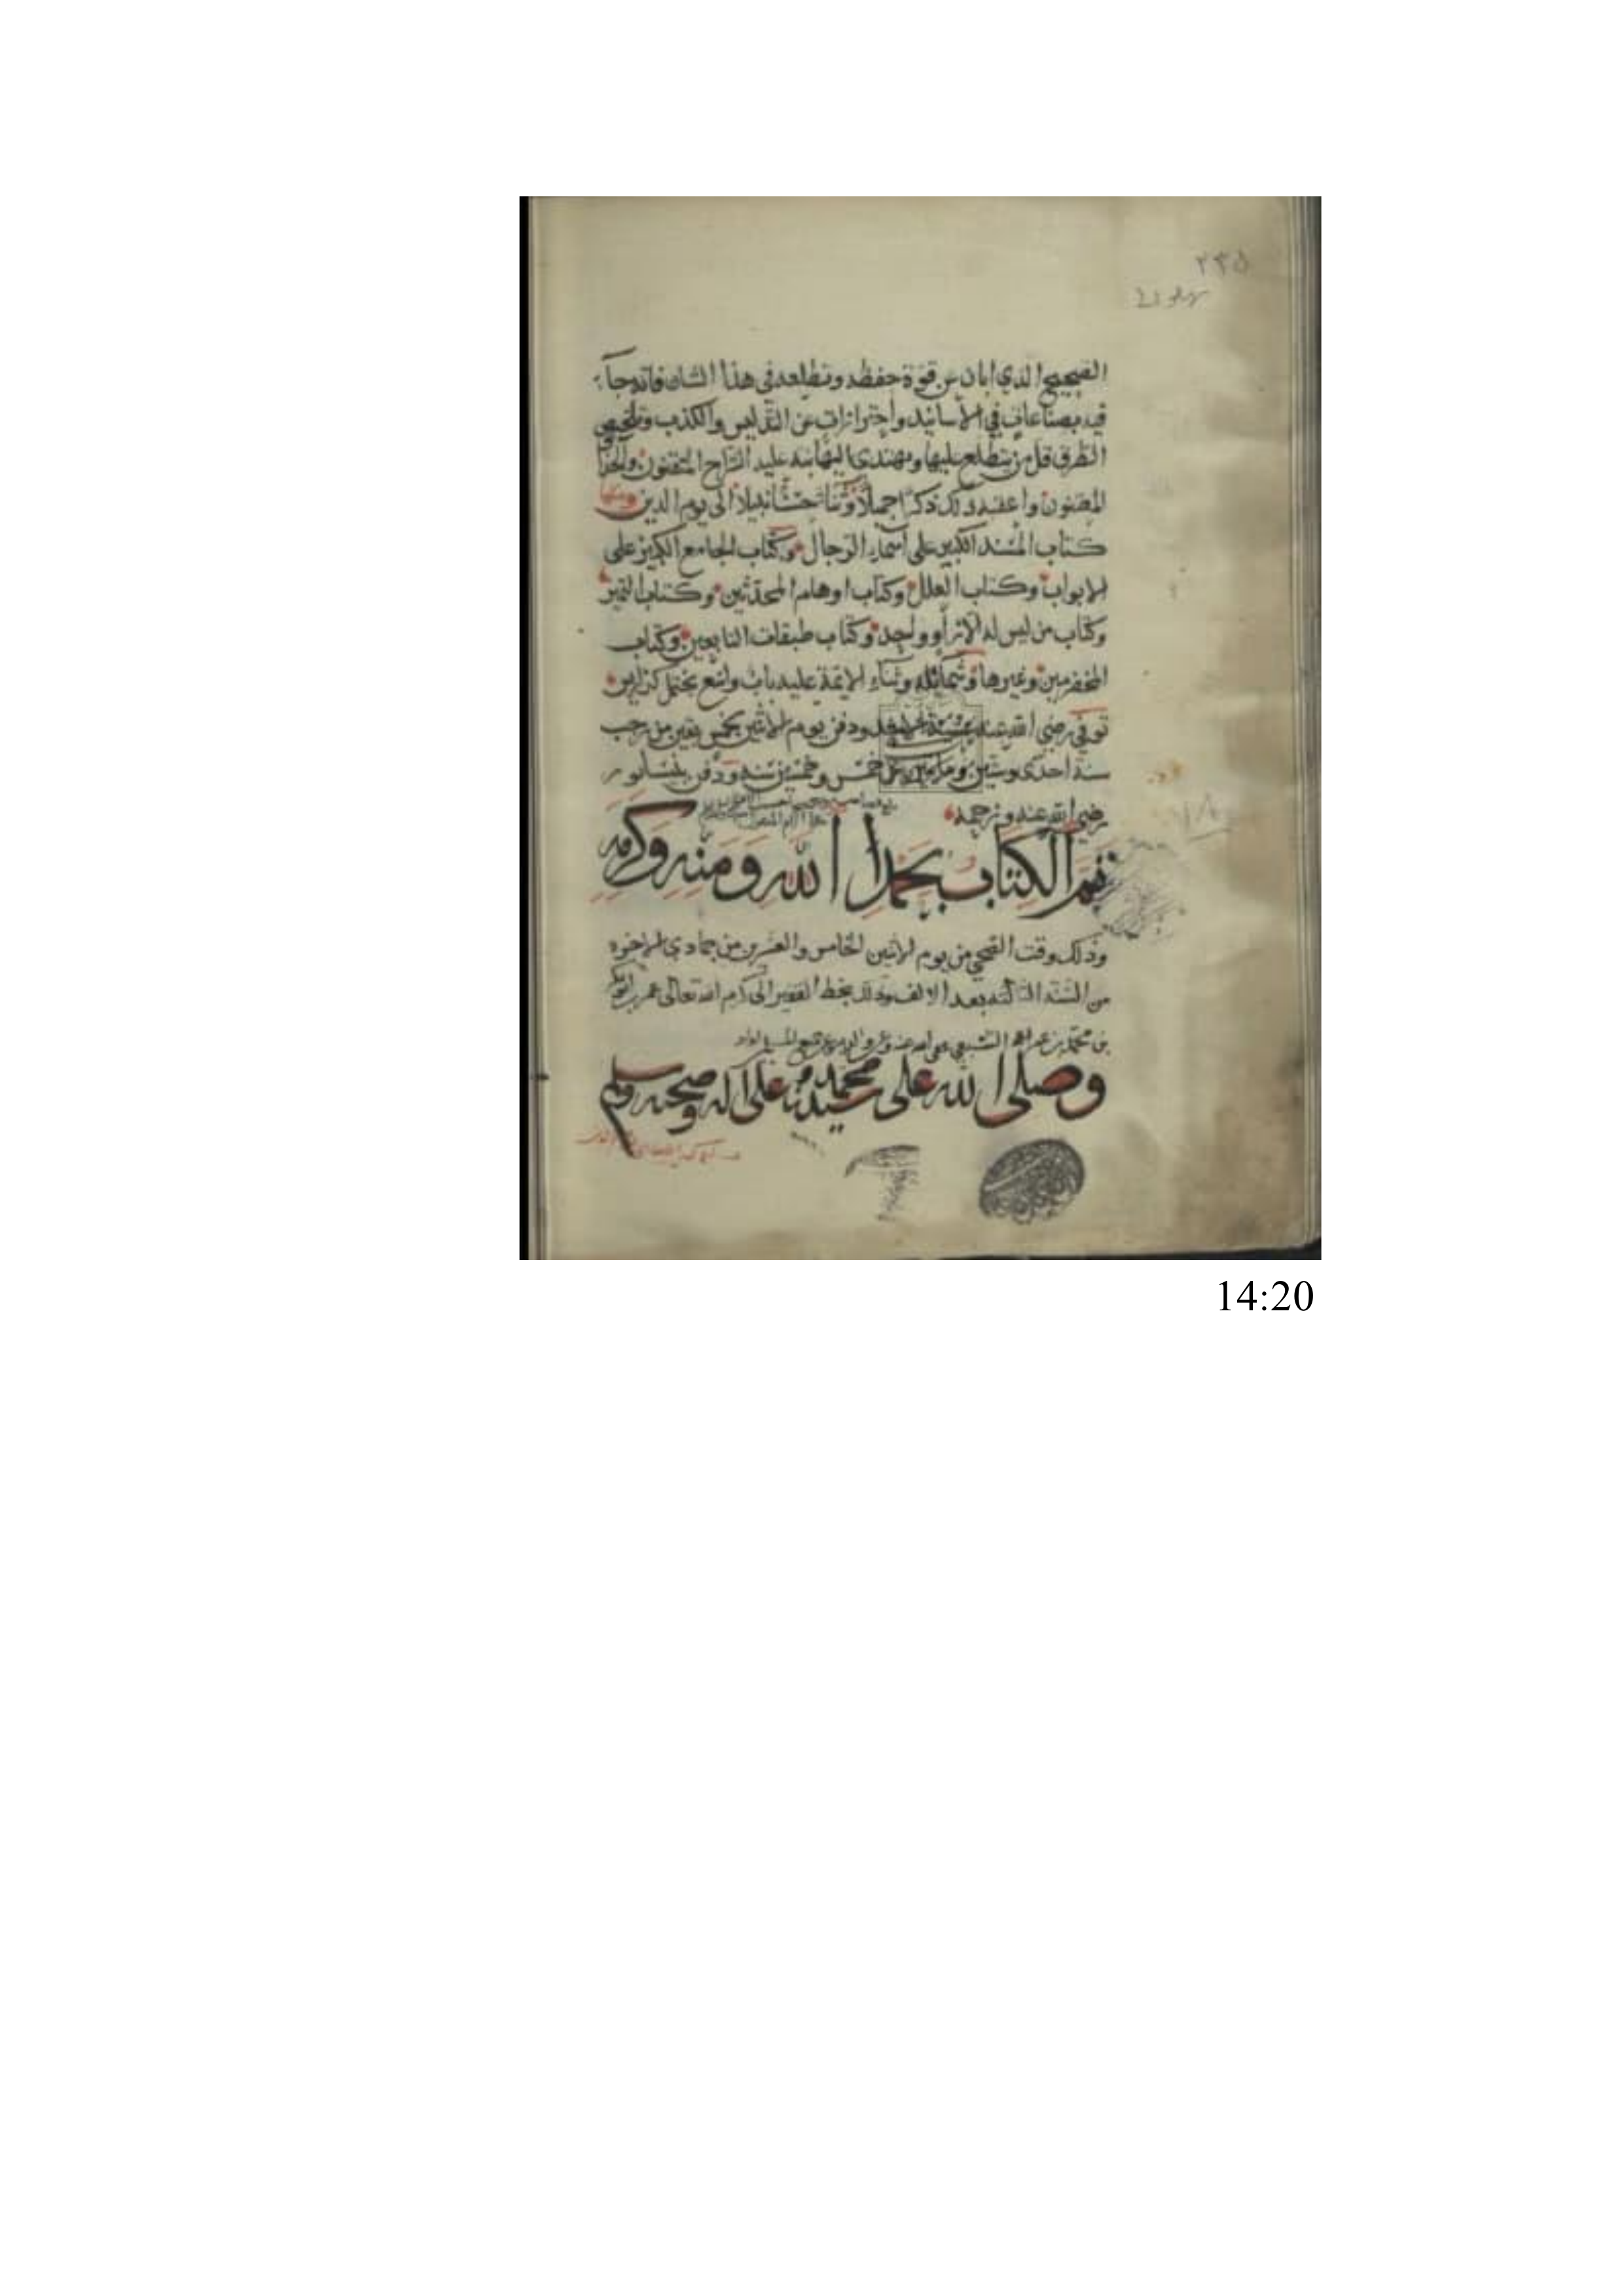 ٢٣٥
الصحيح الذي ابان عن قوة حفظه وتطلعه في هذا الشان فانه جاء
فيه بصناعات في الأسانيد واحترازات عن التدليس والكذب وتلخيص
الطرق قل من يتطلع عليها ويهتدي اليها نبه عليه الشراح المتقنون
المفننون واعقبه ذلك ذكرا جميلا وثناء حسنا نبيلا الى يوم الدين ومنها
كتاب المسند الكبير على اسماء الرجال وكتاب الجامع الكبير على
الابواب وكتاب العلل وكتاب اوهام المحدثين وكتاب التمييز
وكتاب من ليس له الا راو واحد وكتاب طبقات التابعين وكتاب
المخضرمين وغيرها وشمائله وثناء الائمة عليه باب واسع يحتمل كراريس
توفي رضي الله عنه عشية الاحد ودفن يوم الاثنين لخمس بقين من رجب
سنة احدى وستين ومايتين عن خمس وخمسين سنة ودفن بنيسابور
رضي الله عنه ورحمه
تم الكتاب بحمد الله ومنه وكرمه
وذلك وقت الضحى من يوم الاثنين الخامس والعشرين من جمادي الاخره
من السنة الثالثه بعد الالف وذلك بخط الفقير الى كرم الله تعالى عمر بن
بن محمد بن الله عنه
وصلى الله على سيدنا محمد وعلى اله وصحبه وسلم
14:20